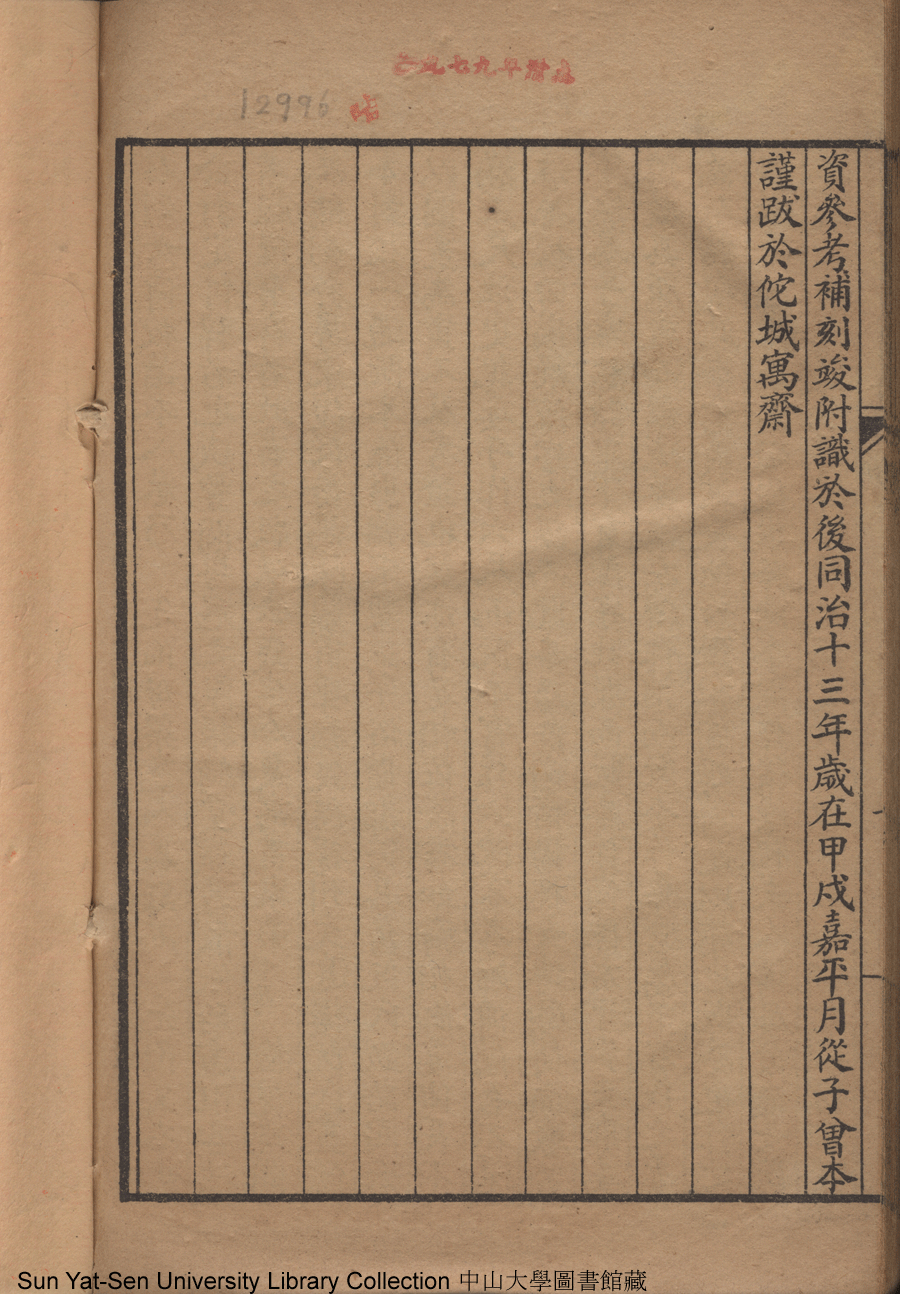 資參考補刻竣附識於後同治十三年歲在甲戌嘉平月從子曾本
謹跋於佗城寓齋
12996
Sun Yat-Sen University Library Collection 中山大學圖書館藏